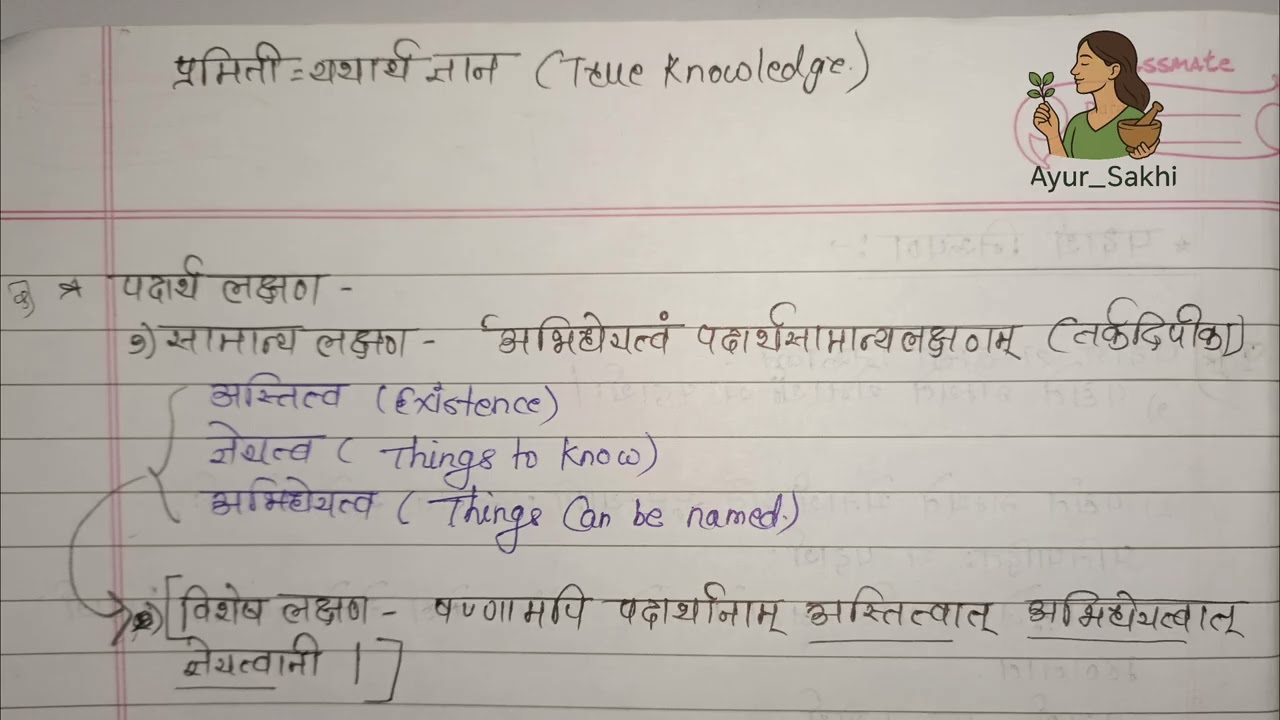 प्रमिती = यथार्थ ज्ञान (True Knowledge.)
ASSMATE
Ayur_Sakhi
* पदार्थ लक्षण -
१) सामान्य लक्षण - अभिधेयत्वं पदार्थसामान्यलक्षणम् (तर्कदिपीका).
अस्तित्व (Existence)
ज्ञेयत्व ( Things to know)
अभिधेयत्व ( Things Can be named.)
२) [विशेष लक्षण - षण्णामपि पदार्थानाम् अस्तित्वात् अभिधेयत्वात्
ज्ञेयत्वानी |]